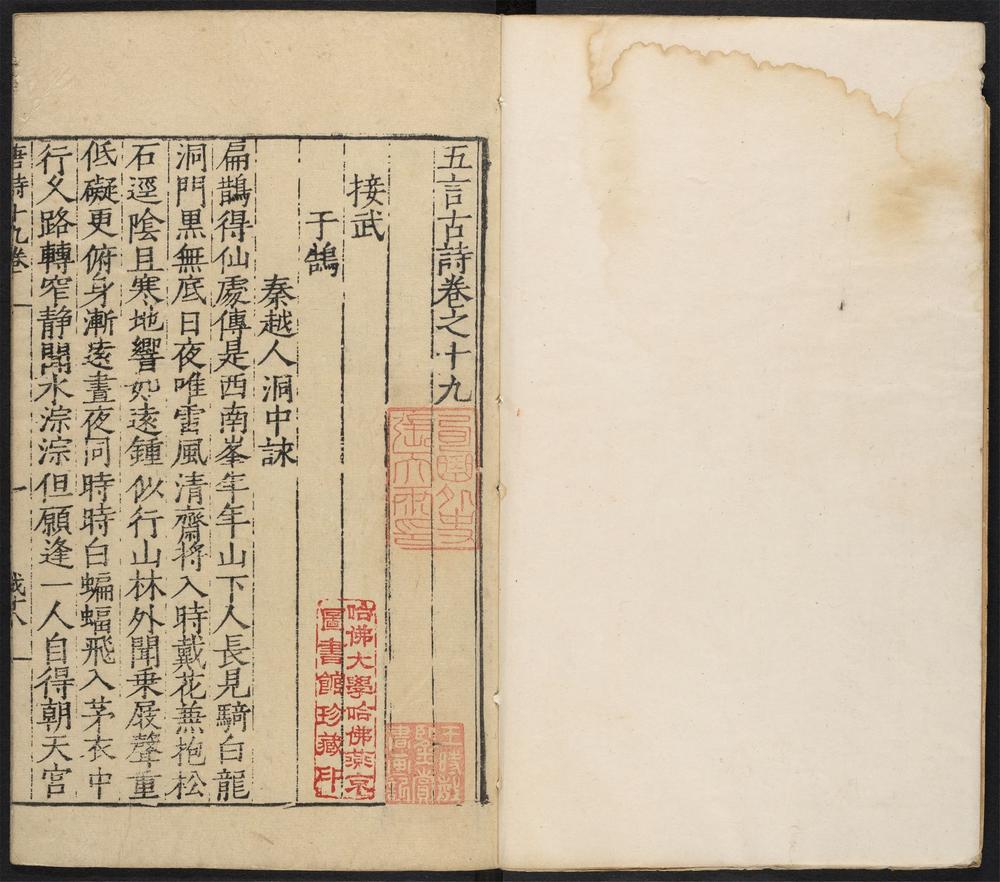 五言古詩卷之十九
接武
于鵠
秦越人洞中詠
扁鵲得仙處傳是西南峯年年山下人長見騎白龍
洞門黑無底日夜唯雷風清齋將入時戴花兼抱松
石逕陰且寒地響如遠鍾似行山林外聞乗屐聲重
低礙更俯身漸遠晝夜同時時白蝙蝠飛入茅衣中
行久路轉窄静聞水淙淙但願逢一人自得朝天宮
唐詩十九卷 一
哈佛大學哈佛燕京
圖書館珍藏印